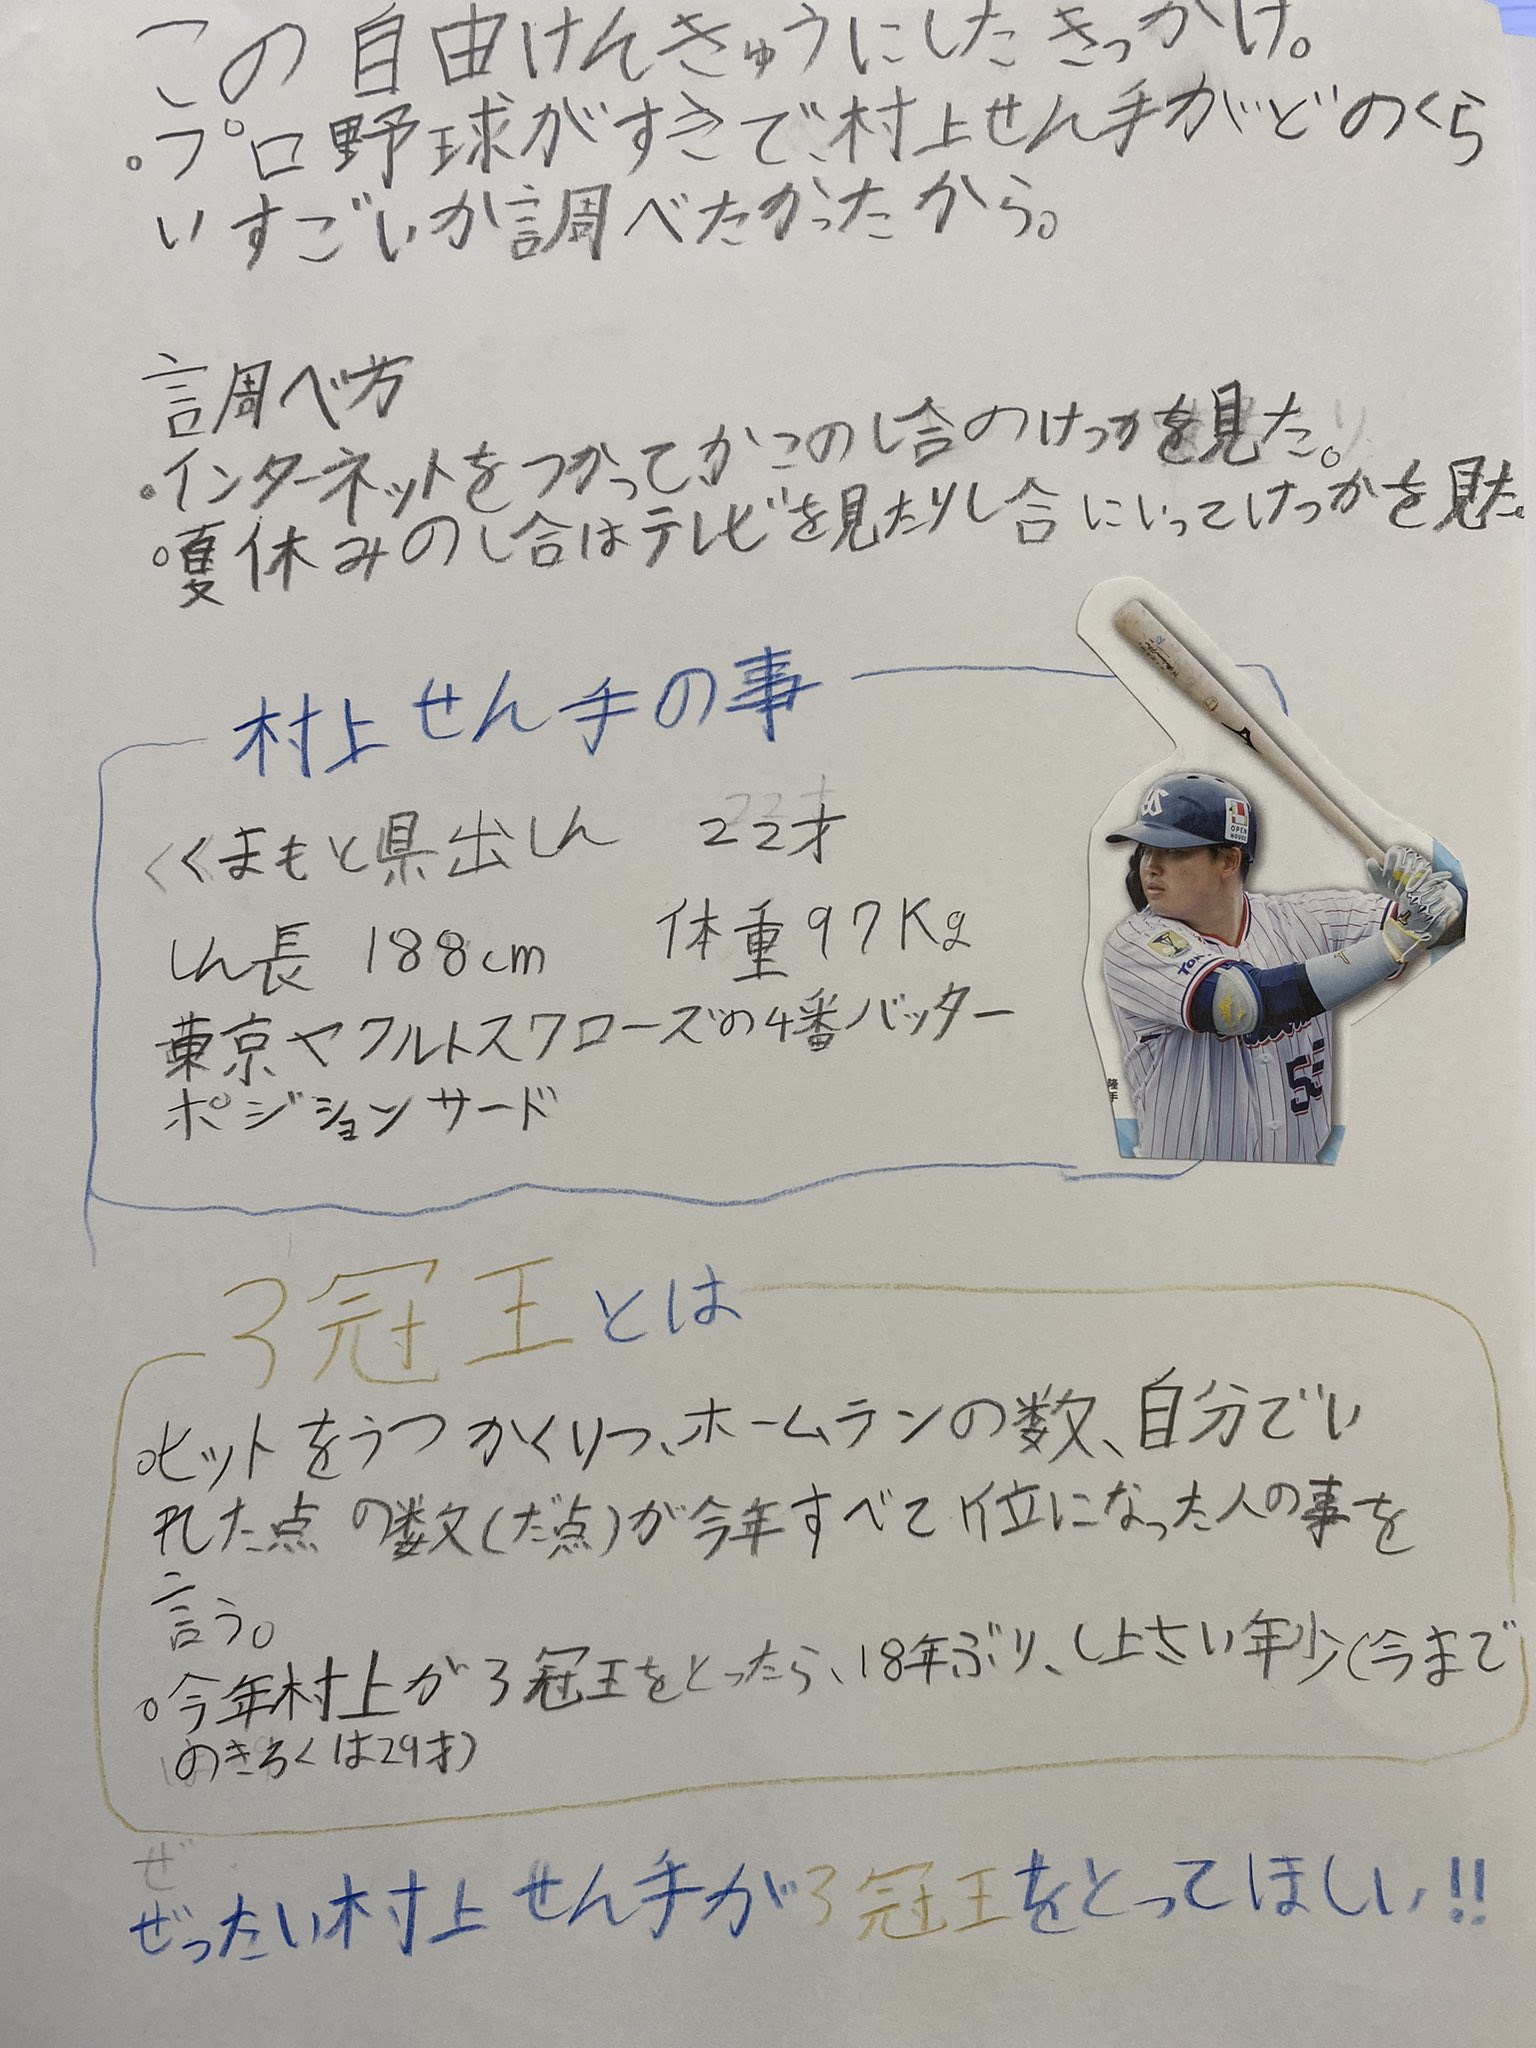 この自由けんきゅうにしたきっかけ。
。プロ野球がすきで、村上せん手がどのくら
いすごいか調べたかったから。
調べ方
。インターネットをつかって、かこのし合のけっかを見た。
。夏休みのし合はテレビを見たりし合にいってけっかを見た。
村上せん手の事
くまもと県出しん 22才
しん長 188cm 体重97Kg
東京ヤクルトスワローズの4番バッター
ポジションサード
OPEN
HOUSE
TOK
55
隆
手
3冠王とは
。ヒットをうつかくりつ、ホームランの数、自分でい
れた点の数(だ点)が今年すべて1位になった人の事を
言う。
。今年村上が3冠王をとったら、18年ぶり、し上さい年少(今まで
のきろくは29才)
ぜったい村上せん手が3冠王をとってほしい!!